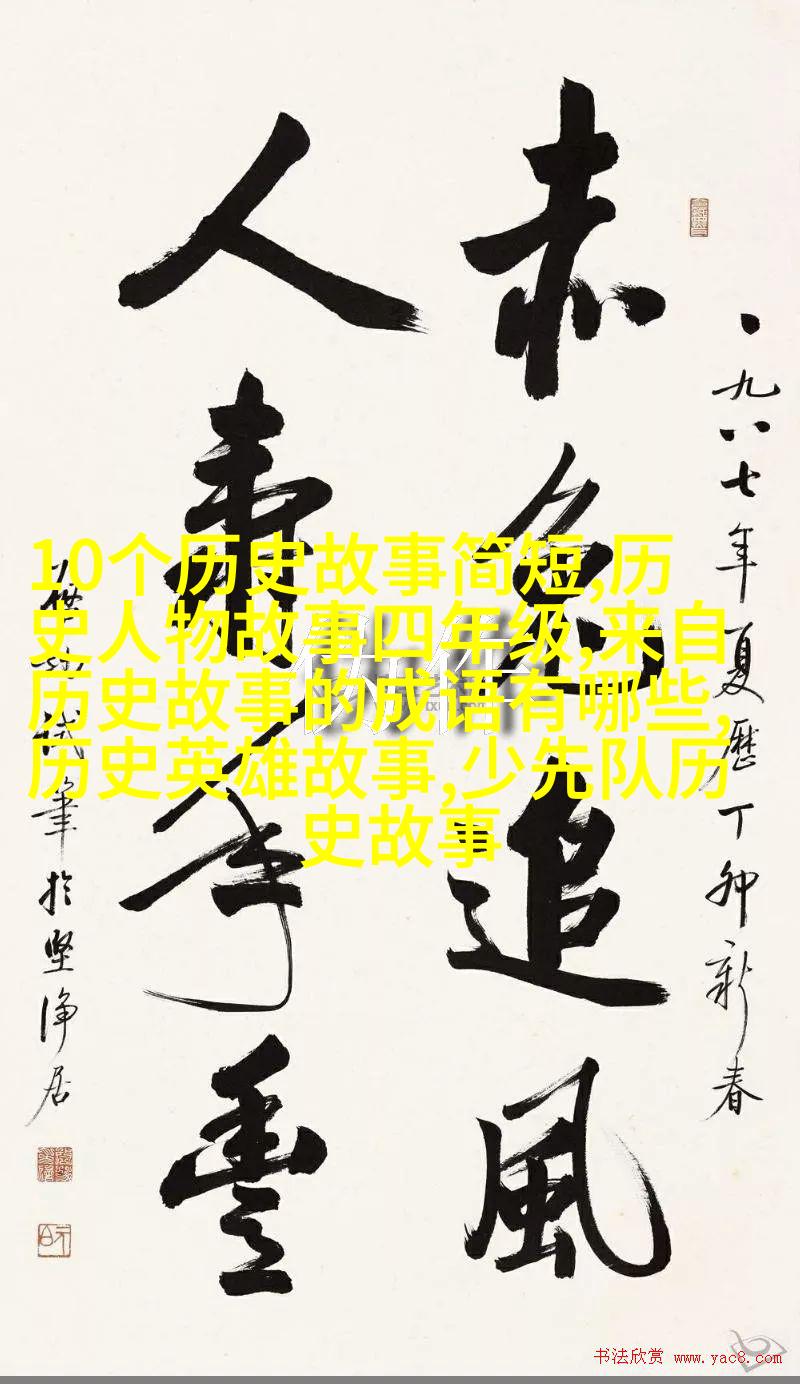 一九八七年夏歷丁卯新春
赤兔追風
人壽年豐
啓功試筆於堅淨居
10个历史故事简短,历
史人物故事四年级,来自
历史故事的成语有哪些,
历史英雄故事,少先队历
史故事
书法欣赏 www.yac8.com